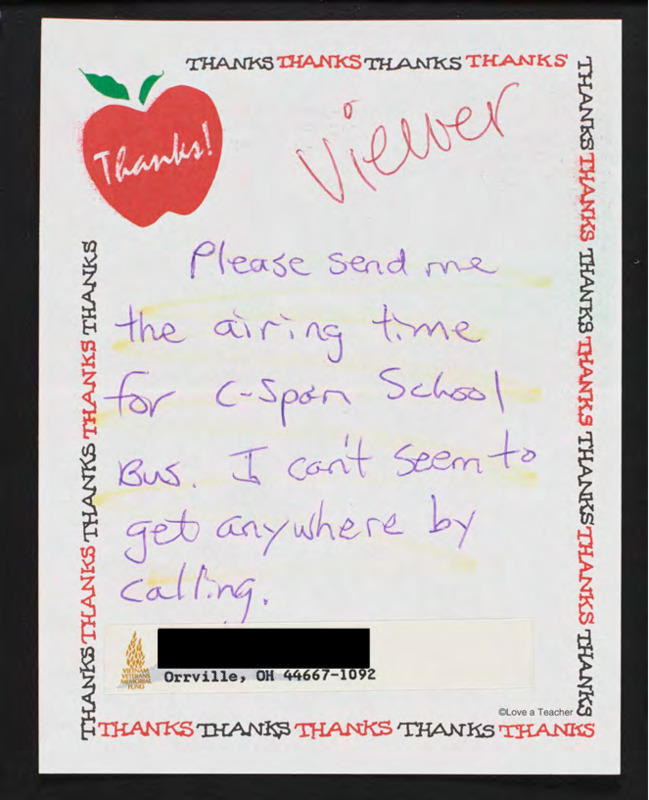 THANKS THANKS THANKS THANKS
Thanks!
Viewer
Please send me
the airing time
for C-Span School
Bus. I can't seem to
get anywhere by
calling.
VIETNAM
VETERANS
MEMORIAL
FUND
Orrville, OH 44667-1092
©Love a Teacher
THANKS THANKS THANKS THANKS THANKS
THANKS THANKS THANKS THANKS THANKS
THANKS THANKS THANKS THANKS THANKS THANKS THANKS